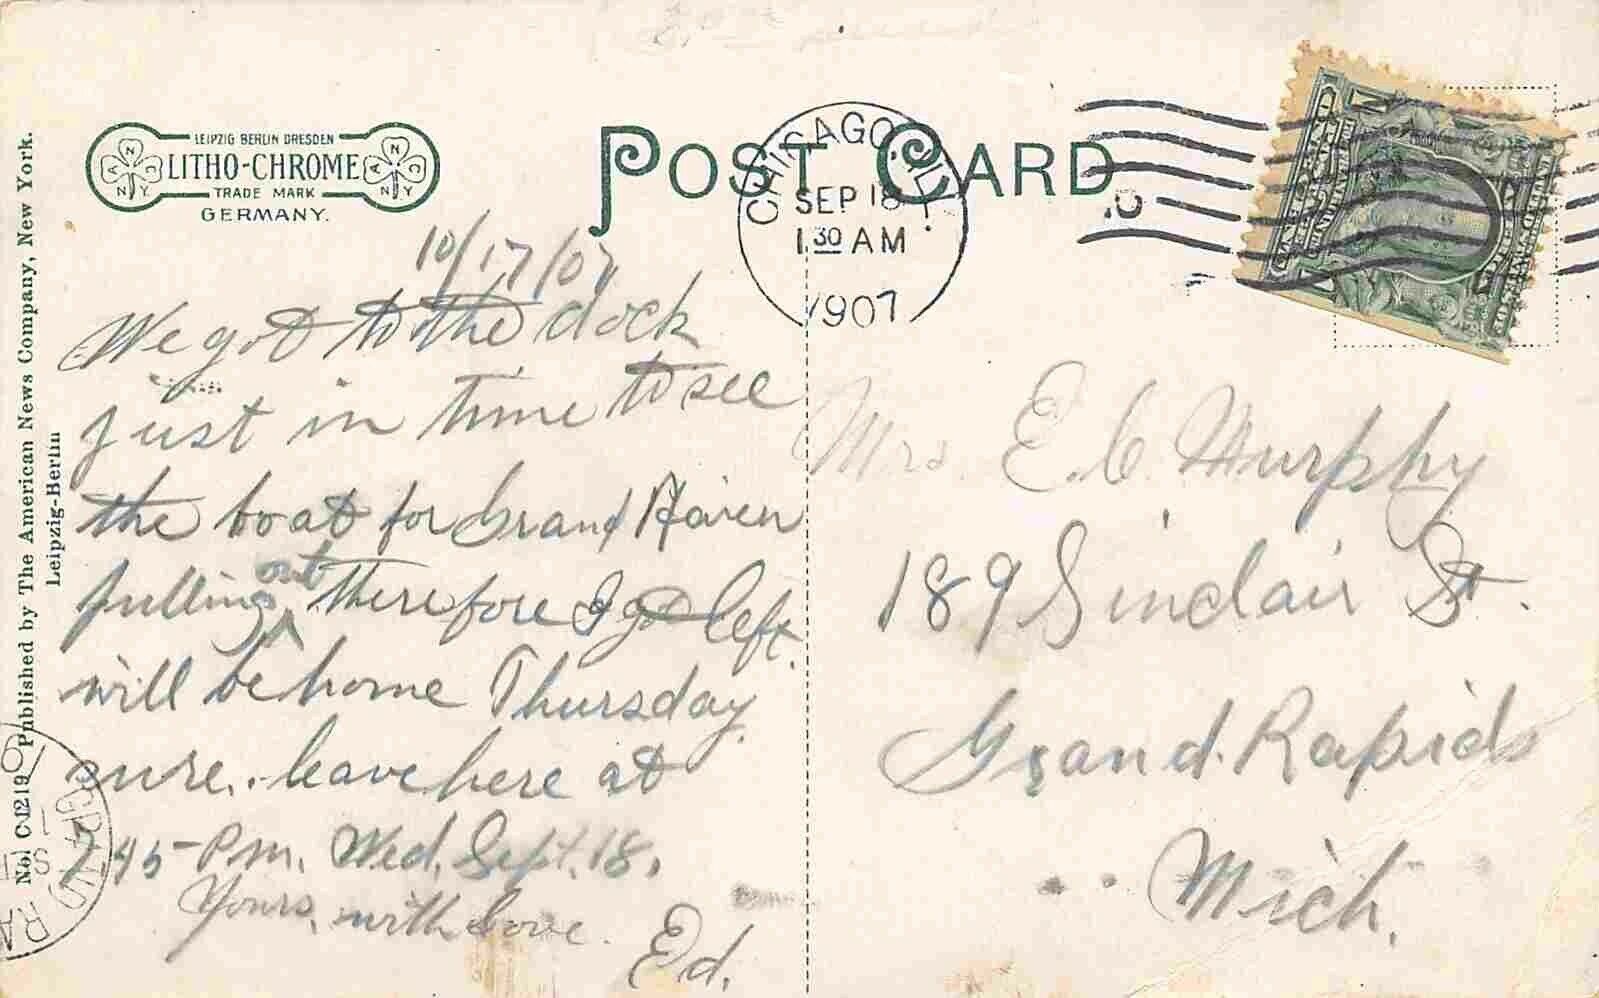 LEIPZIG BERLIN DRESDEN
LITHO-CHROME
TRADE MARK
GERMANY.
POST CARD
CHICAGO, ILL.
SEP 18
1 30 AM
1907
C
No. C 1219 Published by The American News Company, New York.
Leipzig-Berlin
10/17/07
We got to the dock
just in time to see
the boat for Grand Haven
pulling out therefore I got left.
will be home Thursday
sure. leave here at
7 45 P.m. Wed. Sept. 18.
Yours, with love.
Ed.
Mrs. E. C. Murphy
189 Sinclair St.
Grand Rapids
Mich.
GRAND RA